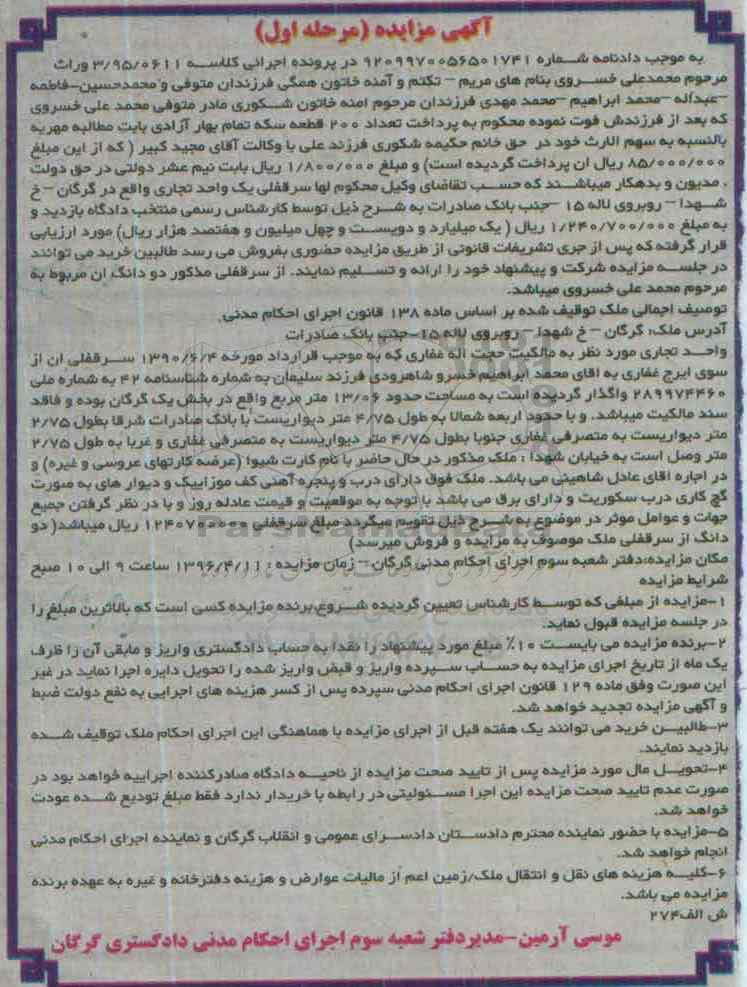 آگهی مزایده (مرحله اول)
به موجب دادنامه شماره ۹۲۰۹۹۷۰۰۵۶۵۰۱۷۴۱ در پرونده اجرائی کلاسه ۳/۹۵/۰۶۱۱ وراث
مرحوم محمدعلی خسروی بنام های مریم – تکتم و آمنه خاتون همگی فرزندان متوفی و محمدحسین-فاطمه
-عبداله -محمد ابراهیم -محمد مهدی فرزندان مرحوم امنه خاتون شکوری مادر متوفی محمد علی خسروی
که بعد از فرزندش فوت نموده محکوم به پرداخت تعداد ۲۰۰ قطعه سکه تمام بهار آزادی بابت مطالبه مهریه
بالنسبه به سهم الارث خود در حق خانم حکیمه شکوری فرزند علی با وکالت آقای مجید کبیر ( که از این مبلغ
۸۵/۰۰۰/۰۰۰ ریال ان پرداخت گردیده است) و مبلغ ۱/۸۰۰/۰۰۰ ریال بابت نیم عشر دولتی در حق دولت
، مدیون و بدهکار میباشند که حسب تقاضای وکیل محکوم لها سرقفلی یک واحد تجاری واقع در گرگان – خ
شهدا – روبروی لاله ۱۵ –جنب بانک صادرات به شرح ذیل توسط کارشناس رسمی منتخب دادگاه بازدید و
به مبلغ ۱/۲۴۰/۷۰۰/۰۰۰ ریال ( یک میلیارد و دویست و چهل میلیون و هفتصد هزار ریال) مورد ارزیابی
قرار گرفته که پس از جری تشریفات قانونی از طریق مزایده حضوری بفروش می رسد طالبین خرید می توانند
در جلسه مزایده شرکت و پیشنهاد خود را ارائه و تسلیم نمایند. از سرقفلی مذکور دو دانگ ان مربوط به
مرحوم محمد علی خسروی میباشد.
توصیف اجمالی ملک توقیف شده بر اساس ماده ۱۳۸ قانون اجرای احکام مدنی
آدرس ملک: گرگان – خ شهدا – روبروی لاله ۱۵-جنب بانک صادرات
واحد تجاری مورد نظر به مالکیت حجت اله غفاری که به موجب قرارداد مورخه ۱۳۹۰/۶/۴ سرقفلی ان از
سوی ایرج غفاری به اقای محمد ابراهیم خسرو شاهرودی فرزند سلیمان به شماره شناسنامه ۴۲ به شماره ملی
۲۸۹۹۷۴۴۶۰ واگذار گردیده است به مساحت حدود ۱۳/۰۶ متر مربع واقع در بخش یک گرگان بوده و فاقد
سند مالکیت میباشد. و با حدود اربعه شمالا به طول ۴/۷۵ متر دیواریست با بانک صادرات شرقا بطول ۲/۷۵
متر دیواریست به متصرفی غفاری جنوبا بطول ۴/۷۵ متر دیواریست به متصرفی غفاری و غربا به طول ۲/۷۵
متر وصل است به خیابان شهدا : ملک مذکور در حال حاضر با نام کارت شیوا (عرضه کارتهای عروسی و غیره) و
در اجاره اقای عادل شاهینی می باشد. ملک فوق دارای درب و پنجره آهنی کف موزاییک و دیوار های به صورت
گچ کاری درب سکوریت و دارای برق می باشد با توجه به موقعیت و قیمت عادله روز و با در نظر گرفتن جمیع
جهات و عوامل موثر در موضوع به شرح ذیل تقویم میگردد مبلغ سرقفلی ۱۲۴۰۷۰۰۰۰۰ ریال میباشد( دو
دانگ از سرقفلی ملک موصوف به مزایده و فروش میرسد)
مکان مزایده:دفتر شعبه سوم اجرای احکام مدنی گرگان – زمان مزایده : ۱۳۹۶/۴/۱۱ ساعت ۹ الی ۱۰ صبح
شرایط مزایده
۱-مزایده از مبلغی که توسط کارشناس تعیین گردیده شروع,برنده مزایده کسی است که بالاترین مبلغ را
در جلسه مزایده قبول نماید.
۲-برنده مزایده می بایست ۱۰٪ مبلغ مورد پیشنهاد را نقدا به حساب دادگستری واریز و مابقی آن را ظرف
یک ماه از تاریخ اجرای مزایده به حساب سپرده واریز و قبض واریز شده را تحویل دایره اجرا نماید در غیر
این صورت وفق ماده ۱۲۹ قانون اجرای احکام مدنی سپرده پس از کسر هزینه های اجرایی به نفع دولت ضبط
و آگهی مزایده تجدید خواهد شد.
۳-طالبین خرید می توانند یک هفته قبل از اجرای مزایده با هماهنگی این اجرای احکام ملک توقیف شده
بازدید نمایند.
۴-تحویل مال مورد مزایده پس از تایید صحت مزایده از ناحیه دادگاه صادرکننده اجراییه خواهد بود در
صورت عدم تایید صحت مزایده این اجرا مسئولیتی در رابطه با خریدار ندارد فقط مبلغ تودیع شده عودت
خواهد شد.
۵-مزایده با حضور نماینده محترم دادستان دادسرای عمومی و انقلاب گرگان و نماینده اجرای احکام مدنی
انجام خواهد شد.
۶-کلیه هزینه های نقل و انتقال ملک/زمین اعم از مالیات عوارض و هزینه دفترخانه و غیره به عهده برنده
مزایده می باشد.
ش الف۲۷۴
موسی آرمین-مدیردفتر شعبه سوم اجرای احکام مدنی دادگستری گرگان